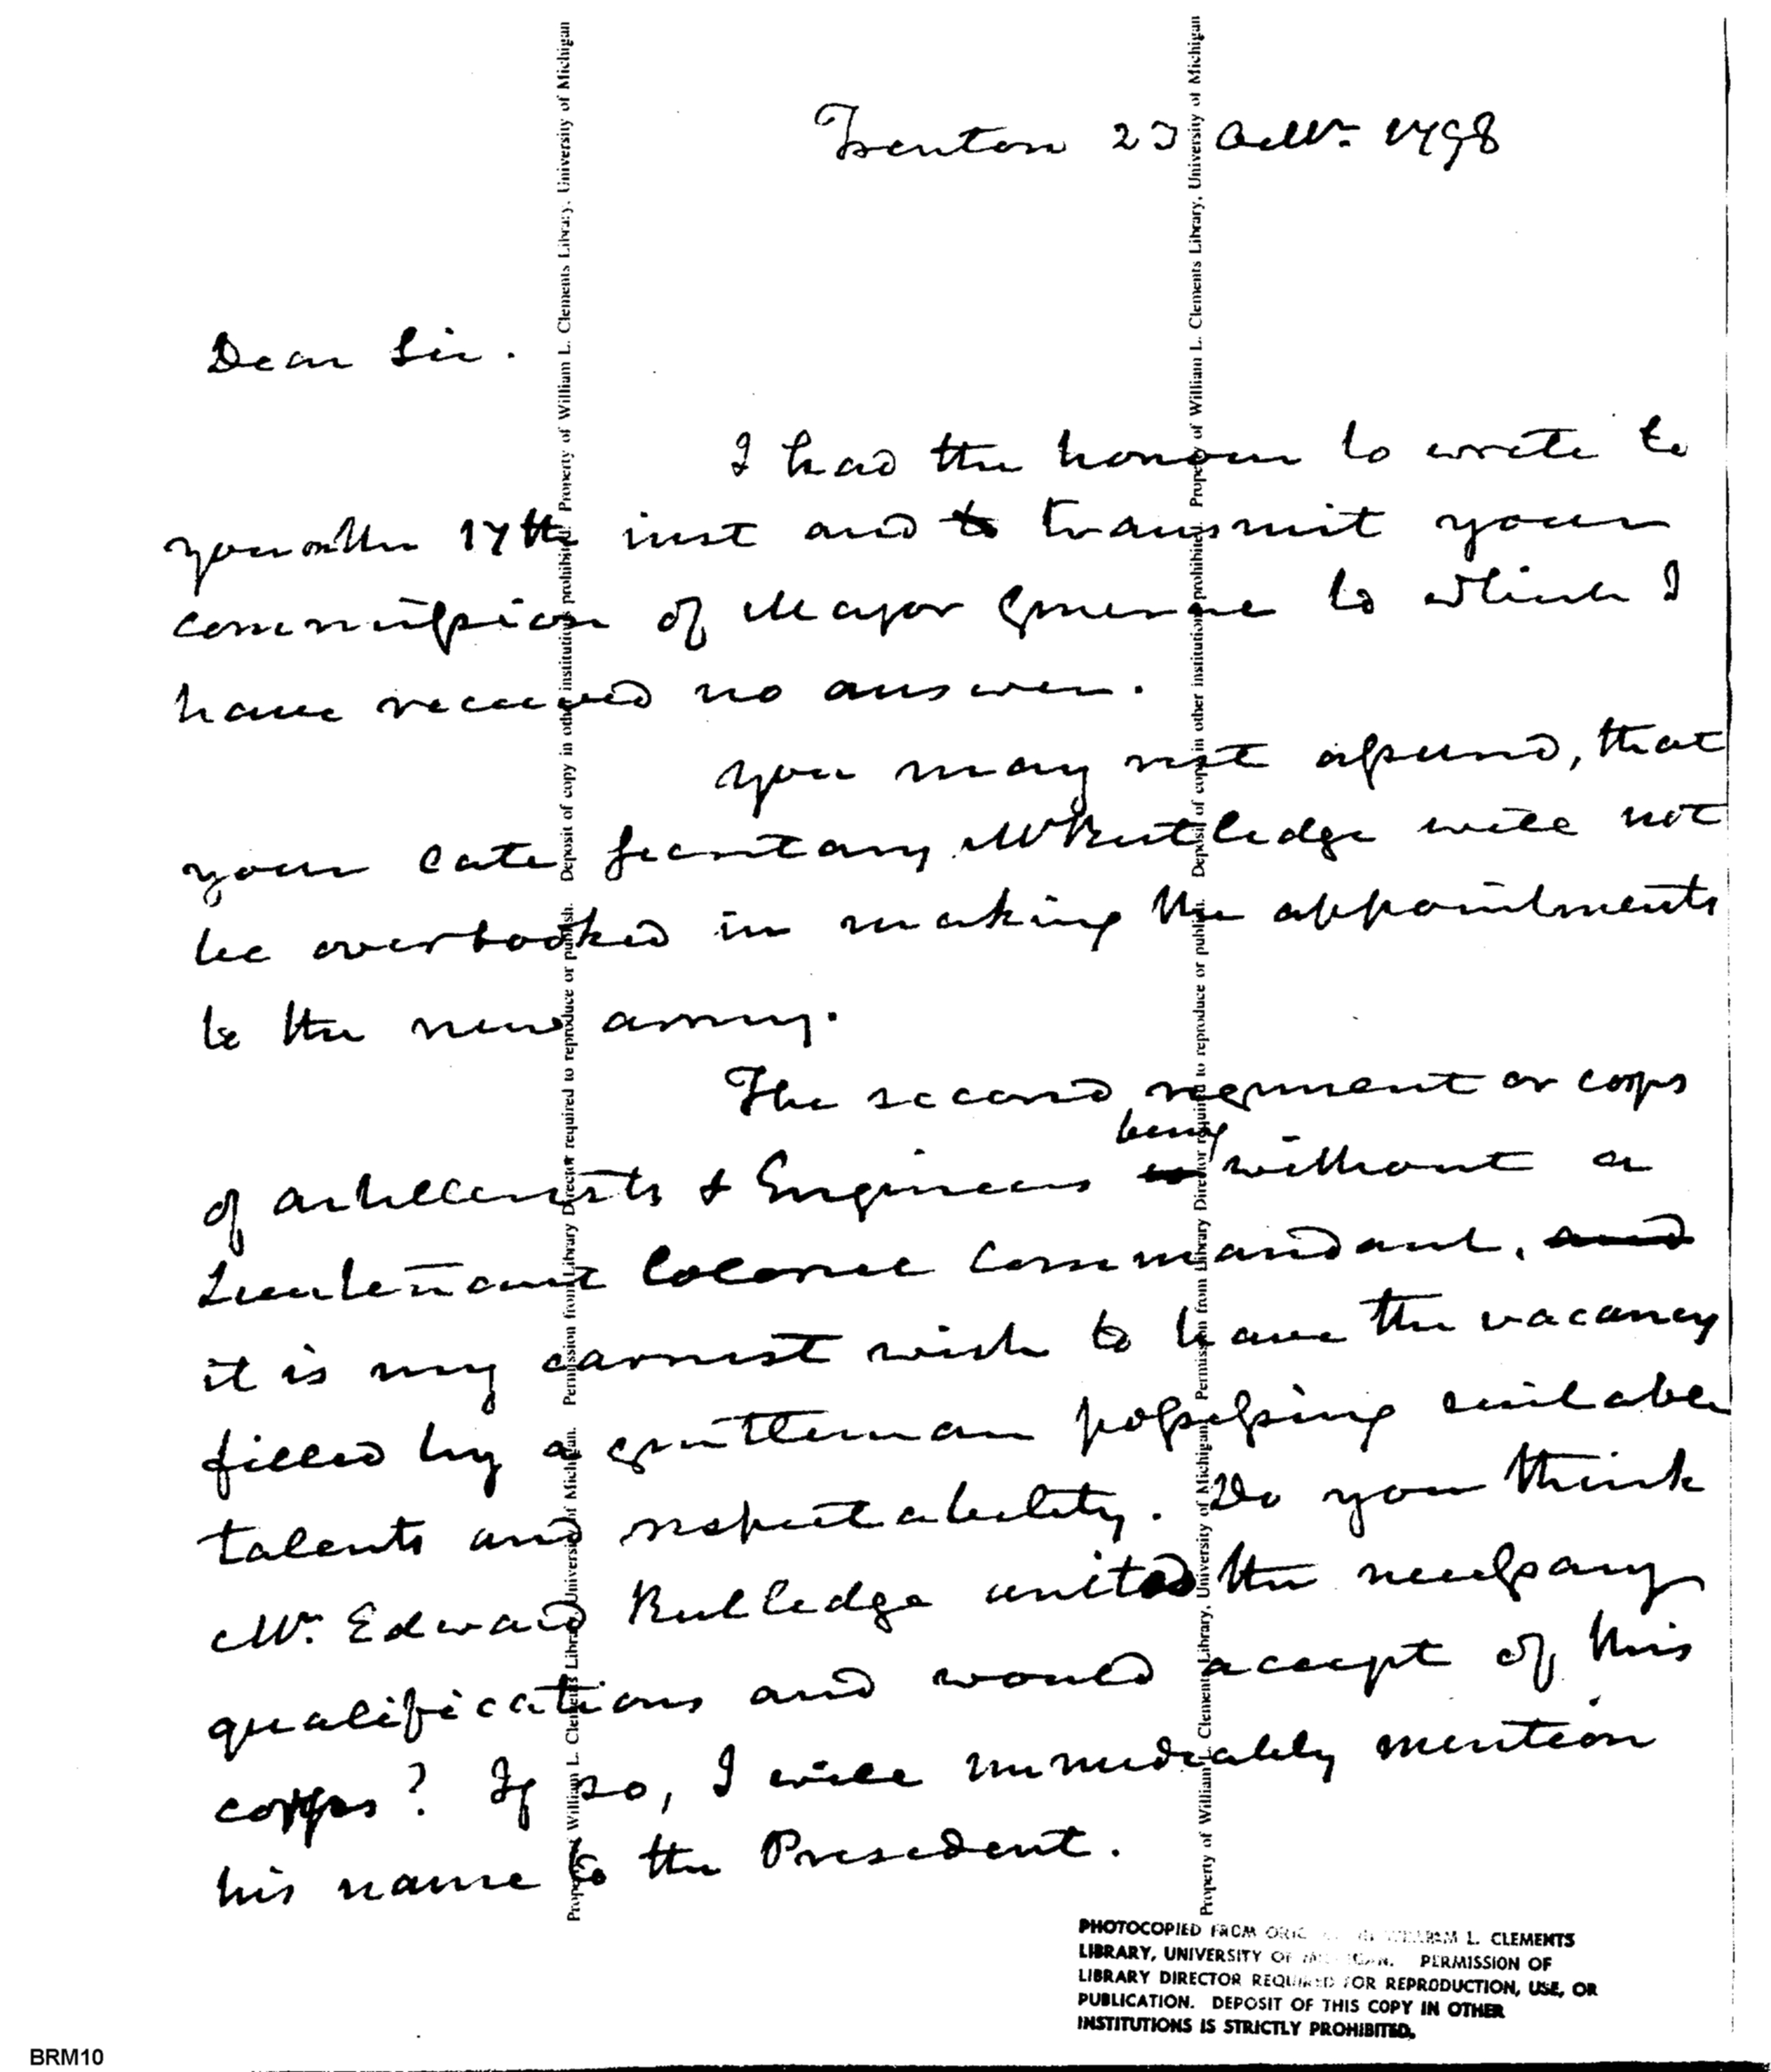 Trenton 23 Octbr. 1798
Dear Sir.
I had the honour to write to
you on the 17th inst and to transmit your
commission of Major General to which I
have received no answer.
You may rest assured, that
your late Secretary Mr Rutledge will not
be overlooked in making the appointments
to the new army.
The second regiment or corps
being
of artillerists & Engineers is without a
Lieutenant Colonel Commandant, and
it is my earnest wish to have the vacancy
filled by a gentleman possessing suitable
talents and respectability. Do you think
Mr. Edward Rutledge united the necessary
qualifications and would accept of this
corps? If so, I will immediately mention
his name to the President.
Property of William L. Clements Library, University of Michigan. Permission from Library Director required to reproduce or publish. Deposit of copy in other institutions prohibited. Property of William L. Clements Library, University of Michigan
Property of William L. Clements Library, University of Michigan. Permission from Library Director required to reproduce or publish. Deposit of copy in other institutions prohibited. Property of William L. Clements Library, University of Michigan
PHOTOCOPIED FROM ORIG IN WILLIAM L. CLEMENTS
LIBRARY, UNIVERSITY OF MICHIGAN. PERMISSION OF
LIBRARY DIRECTOR REQUIRED FOR REPRODUCTION, USE, OR
PUBLICATION. DEPOSIT OF THIS COPY IN OTHER
INSTITUTIONS IS STRICTLY PROHIBITED.
BRM10